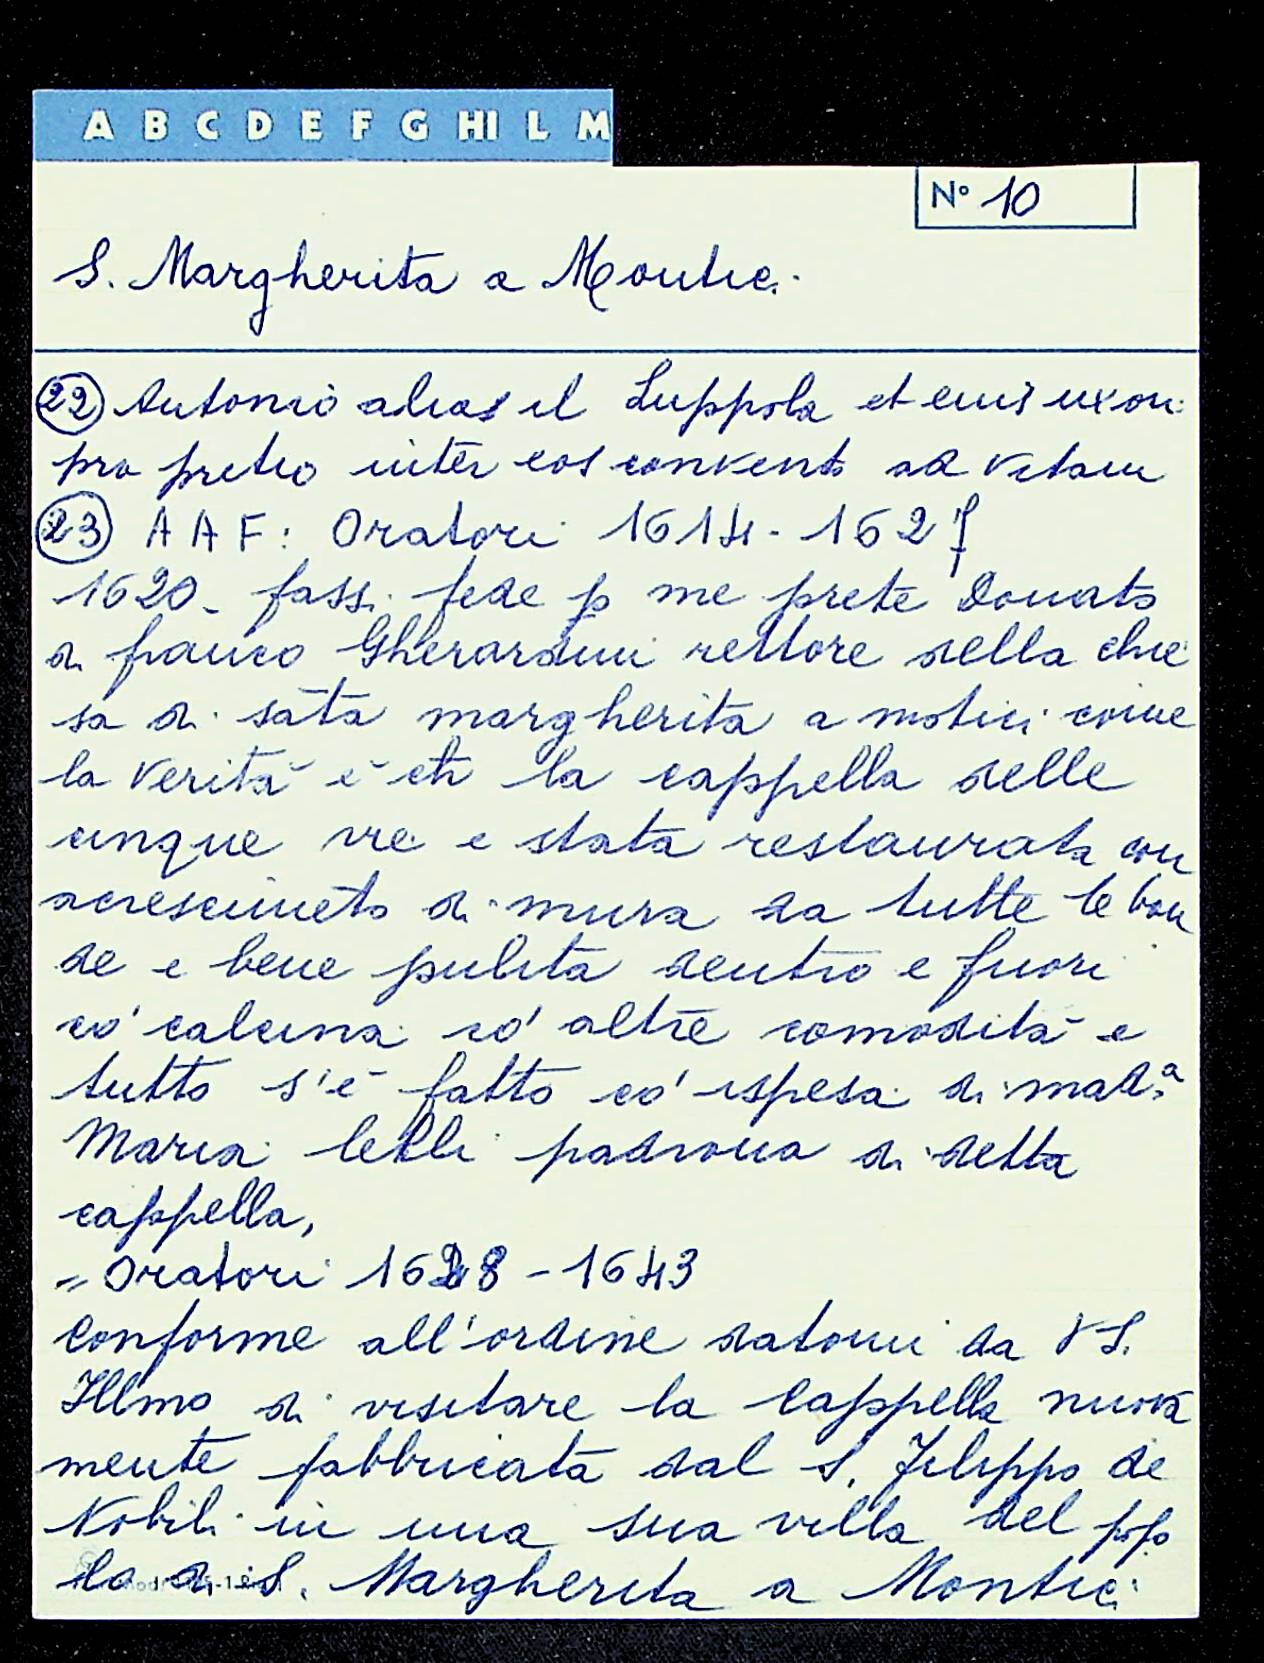 A B C D E F G HI L M
N° 10
S. Margherita a Montici
22 Antonio alias il Luppola et eius uxori
pro pretio intēr eos convento ad vitam
23 A A F: Oratori 1614 - 1627
1620 - fassi fede p me prete Donato
di franco Gherardini rettore della chie
sa di sāta margherita a motici come
la verità è ch la cappella delle
cinque vie e stata restaurata con
acrescimeto di mura da tutte le ban
de e bene pulita dentro e fuori
co' calcina co' altre comodità e
tutto s'è fatto co' ispesa di mad.ª
Maria lelli padrona di detta
cappella,
= Oratori 1628 - 1643
Conforme all'ordine datomi da VS.
Illmo di visitare la Cappella nuova
mente fabbricata dal S. Filippo de
Nobili in una sua villa del popo
lo di S. Margherita a Montici